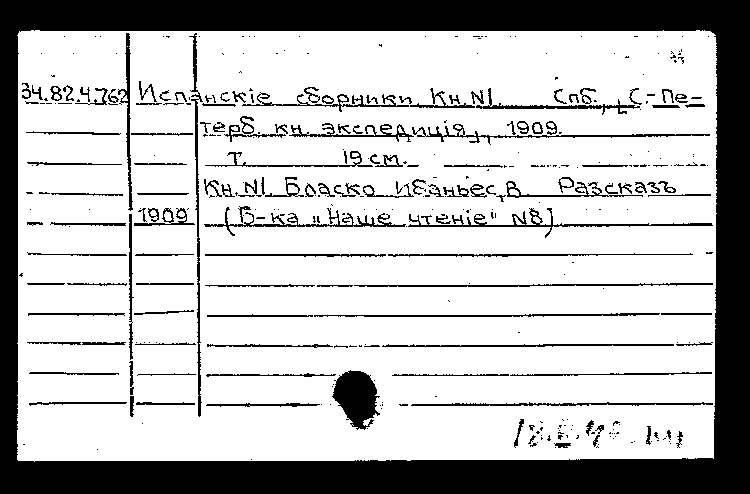 34.82.4.762 Испанскіе сборники. Кн.№1. Спб., [С.-Пе-
терб. кн. экспедиція], 1909.
т. 19 см.
Кн.№1. Бласко Ибаньес, В. Разсказъ
1909 (Б-ка „Наше чтеніе" №8)